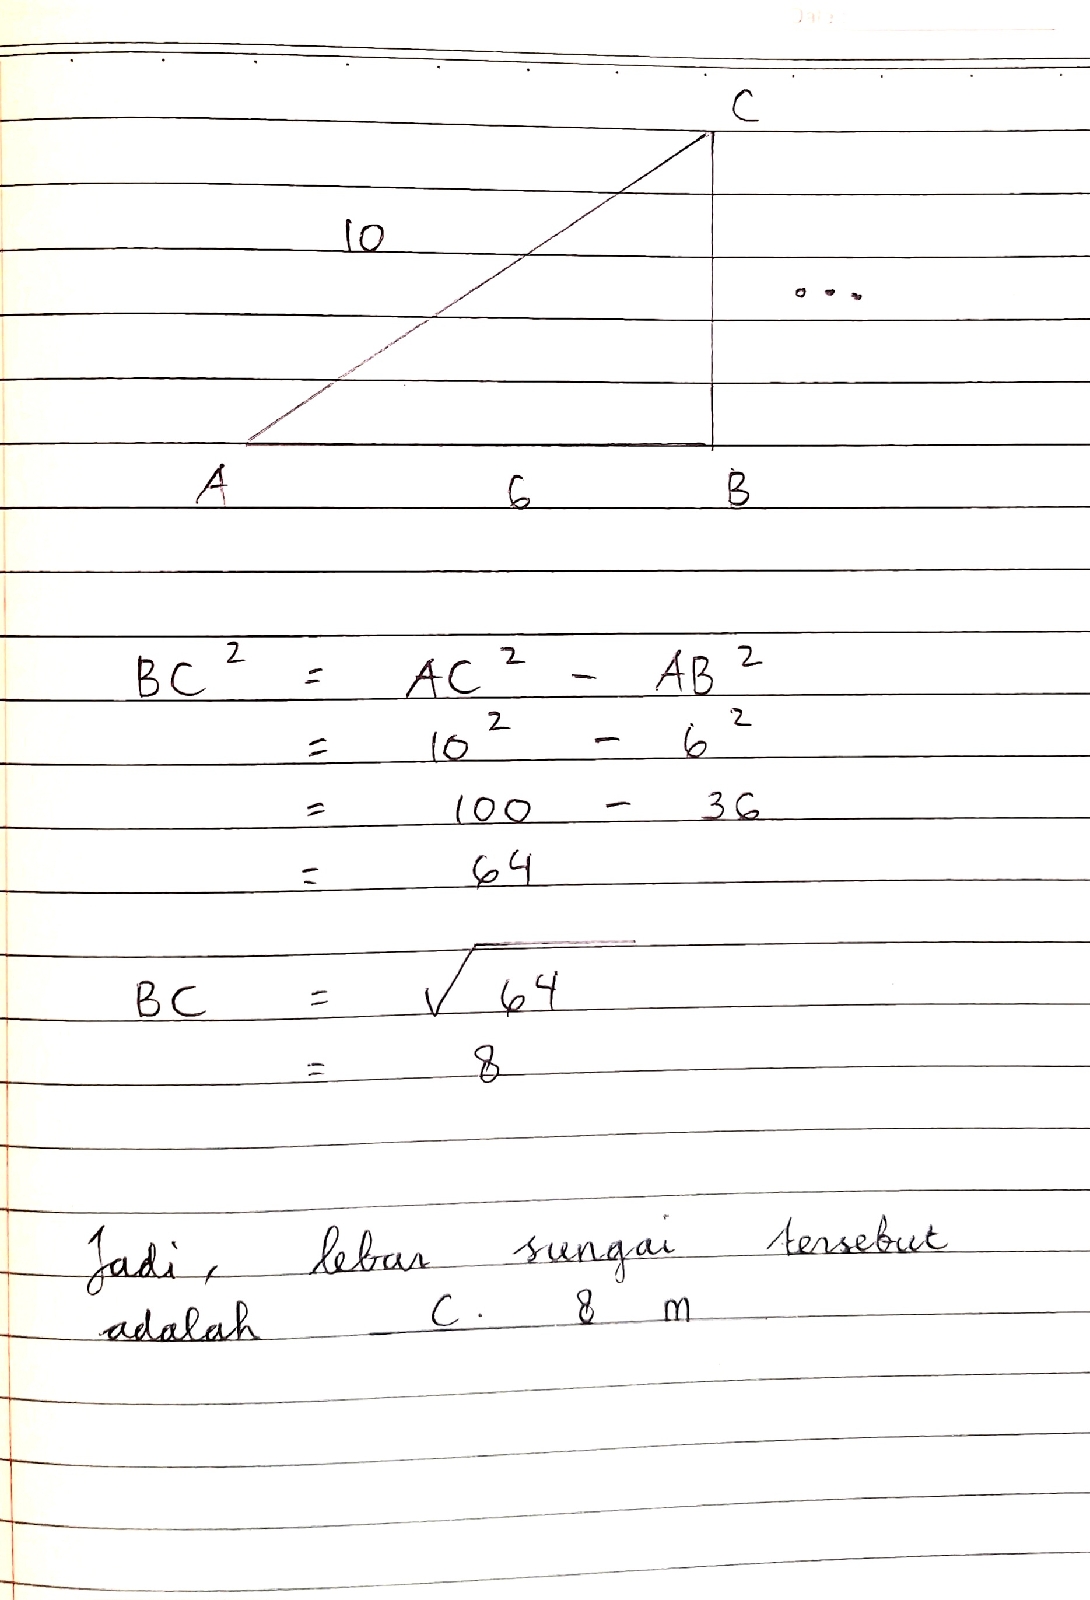 C
10
...
A 6 B
BC² = AC² - AB²
= 10² - 6²
= 100 - 36
= 64
BC = √64
= 8
Jadi, lebar sungai tersebut
adalah C. 8 m